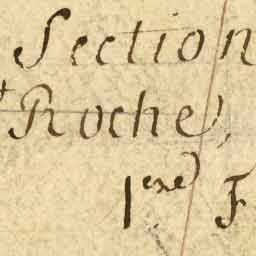 Section
Roche,
1ere F